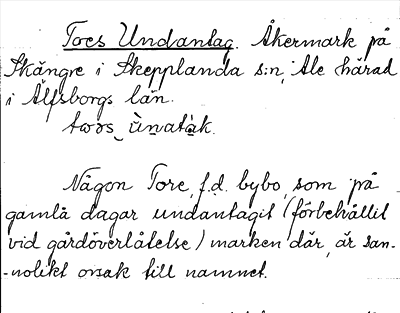 Tores Undantag. Åkermark på
Skångre i Skepplanda s:n, Ale härad
i Älfsborgs län.
Någon Tore, f.d. bybo, som på
gamla dagar undantagit (förbehållit
vid gårdöverlåtelse) marken där, är san-
-nolikt orsak till namnet.